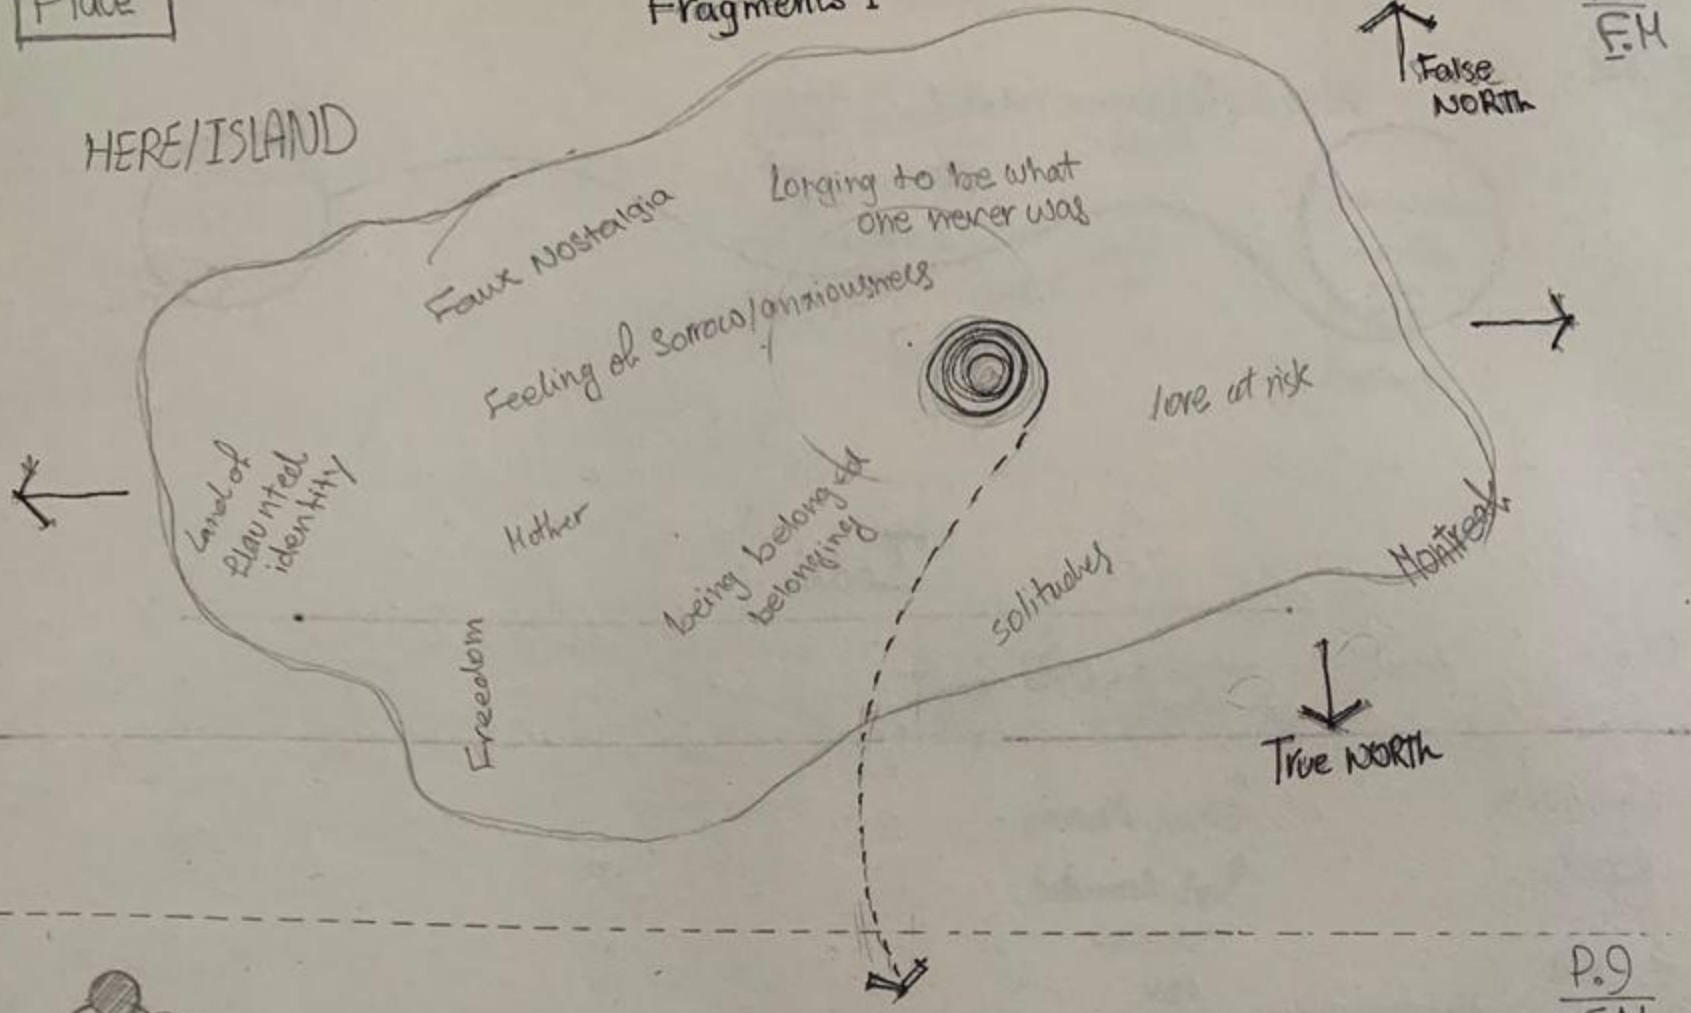 Place
Fragments 1
F.M
False
NORTH
HERE/ISLAND
Longing to be what
one never was
Faux Nostalgia
Feeling of sorrow/anxiousness
love at risk
Land of
flaunted
identity
Mother
being belong
belonging
solitudes
Montreal
Freedom
True NORTH
P.9